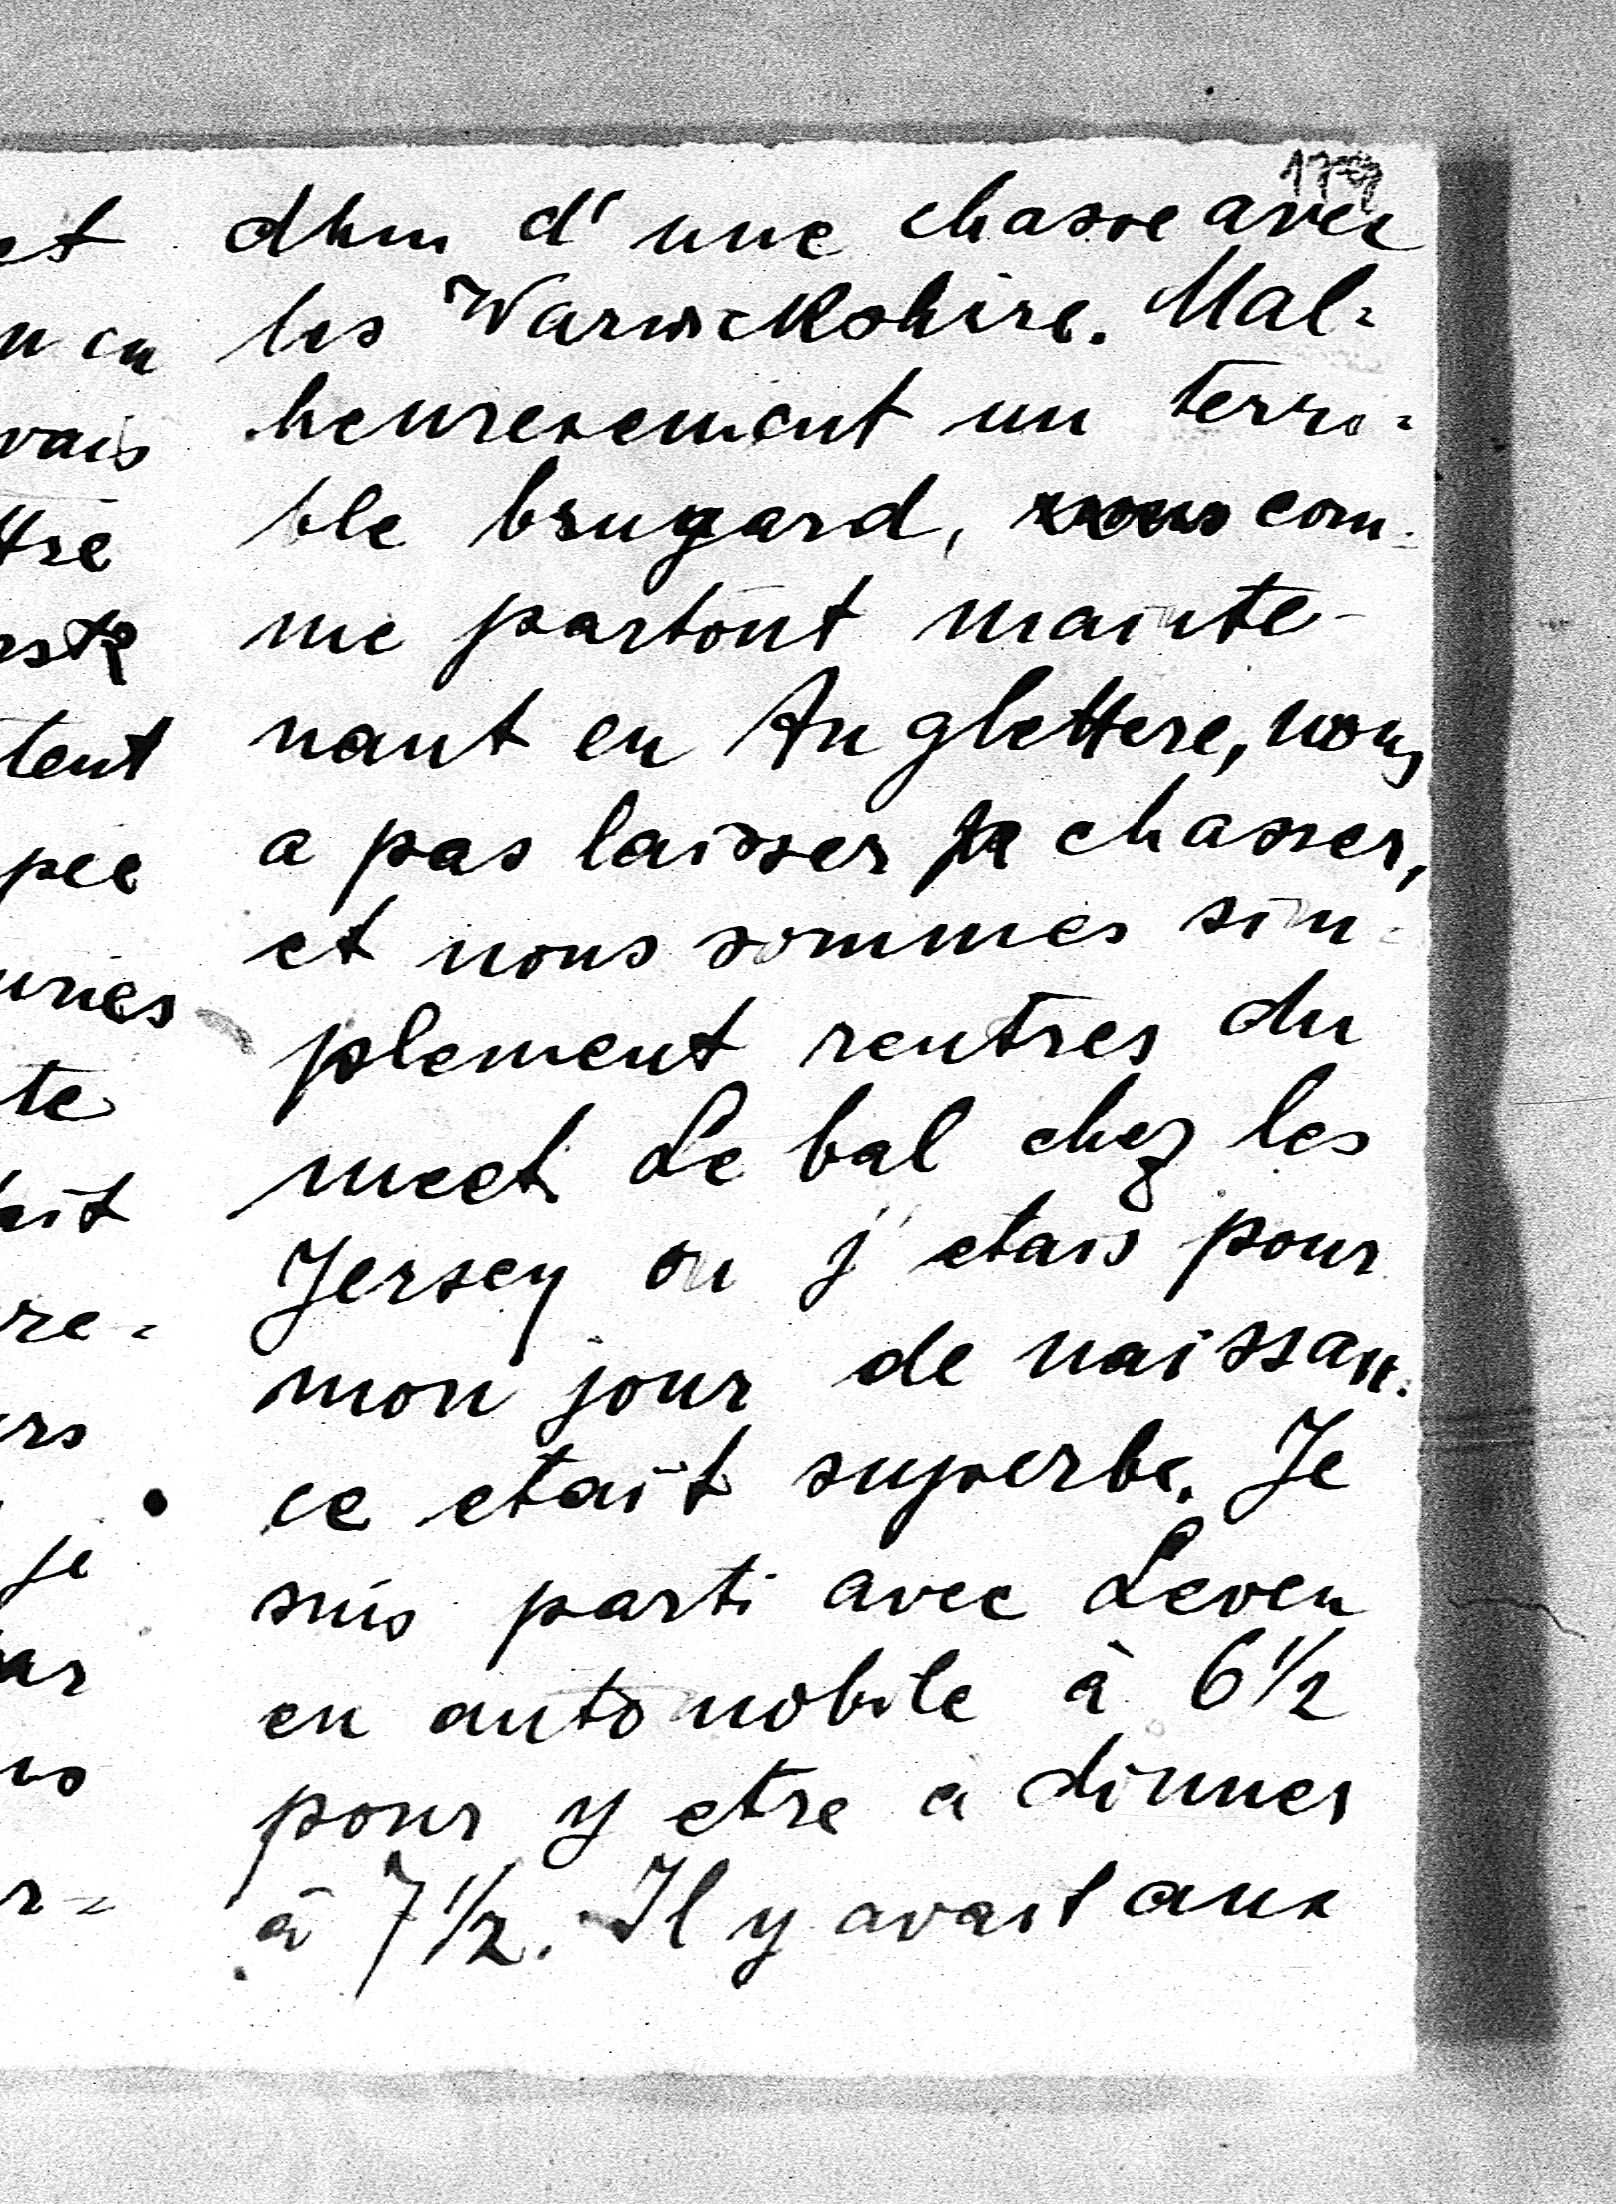 179
dhui d'une chasse avec
les Warwickshire. Mal=
heuresement un terri=
ble brugard, com=
me partout mainte-
nant en Anglettere, nous
a pas laisser chasser,
et nous sommes sim=
plement rentres du
meet. Le bal chez les
Jersey ou j'etais pour
mon jour de naissan=
ce etait superbe. Je
suis parti avec Leven
en automobile à 6 1/2
pour y etre a dinner
à 7 1/2. Il y avait aux